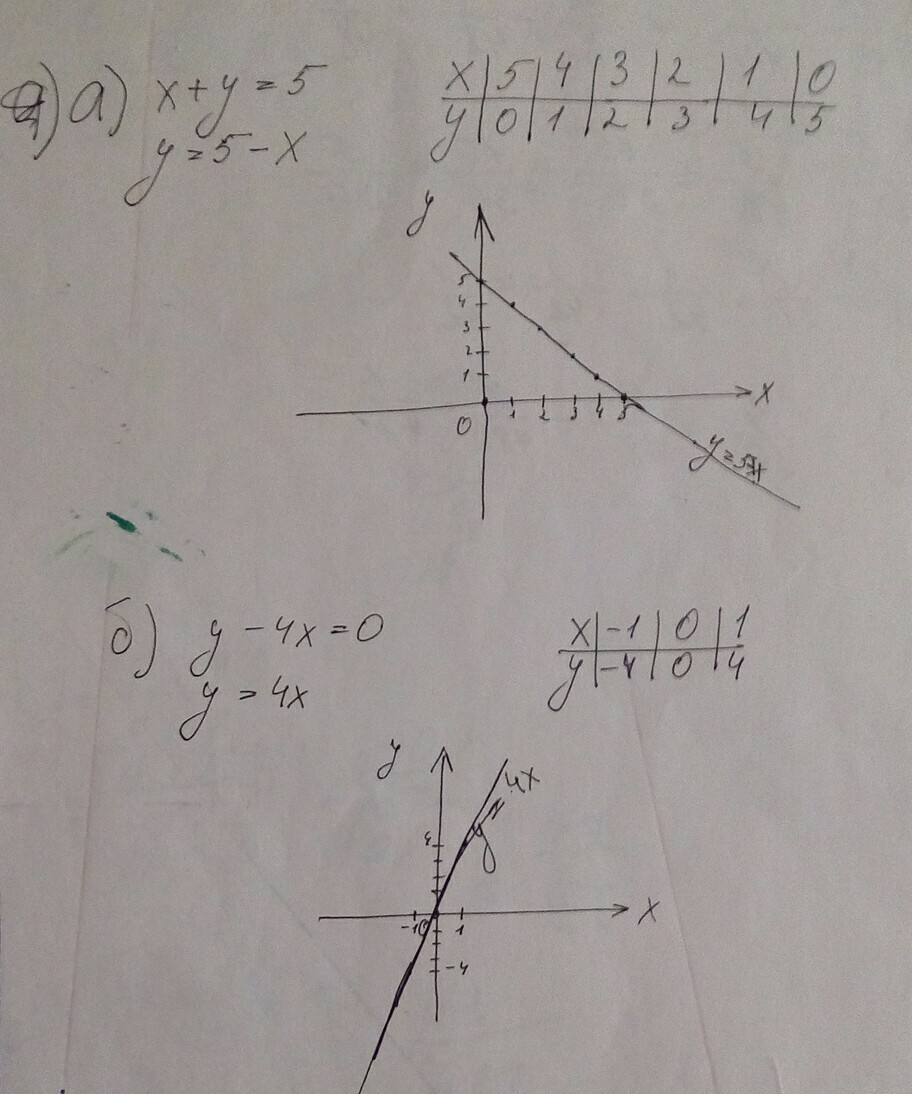 а) x+y=5
y=5-x
x|5|4|3|2|1|0
y|0|1|2|3|4|5
y
5
4
3
2
1
0 1 2 3 4 5 x
б) y-4x=0
y=4x
x|-1|0|1
y|-4|0|4
y
y=4x
4
-1 0 1 x
-4